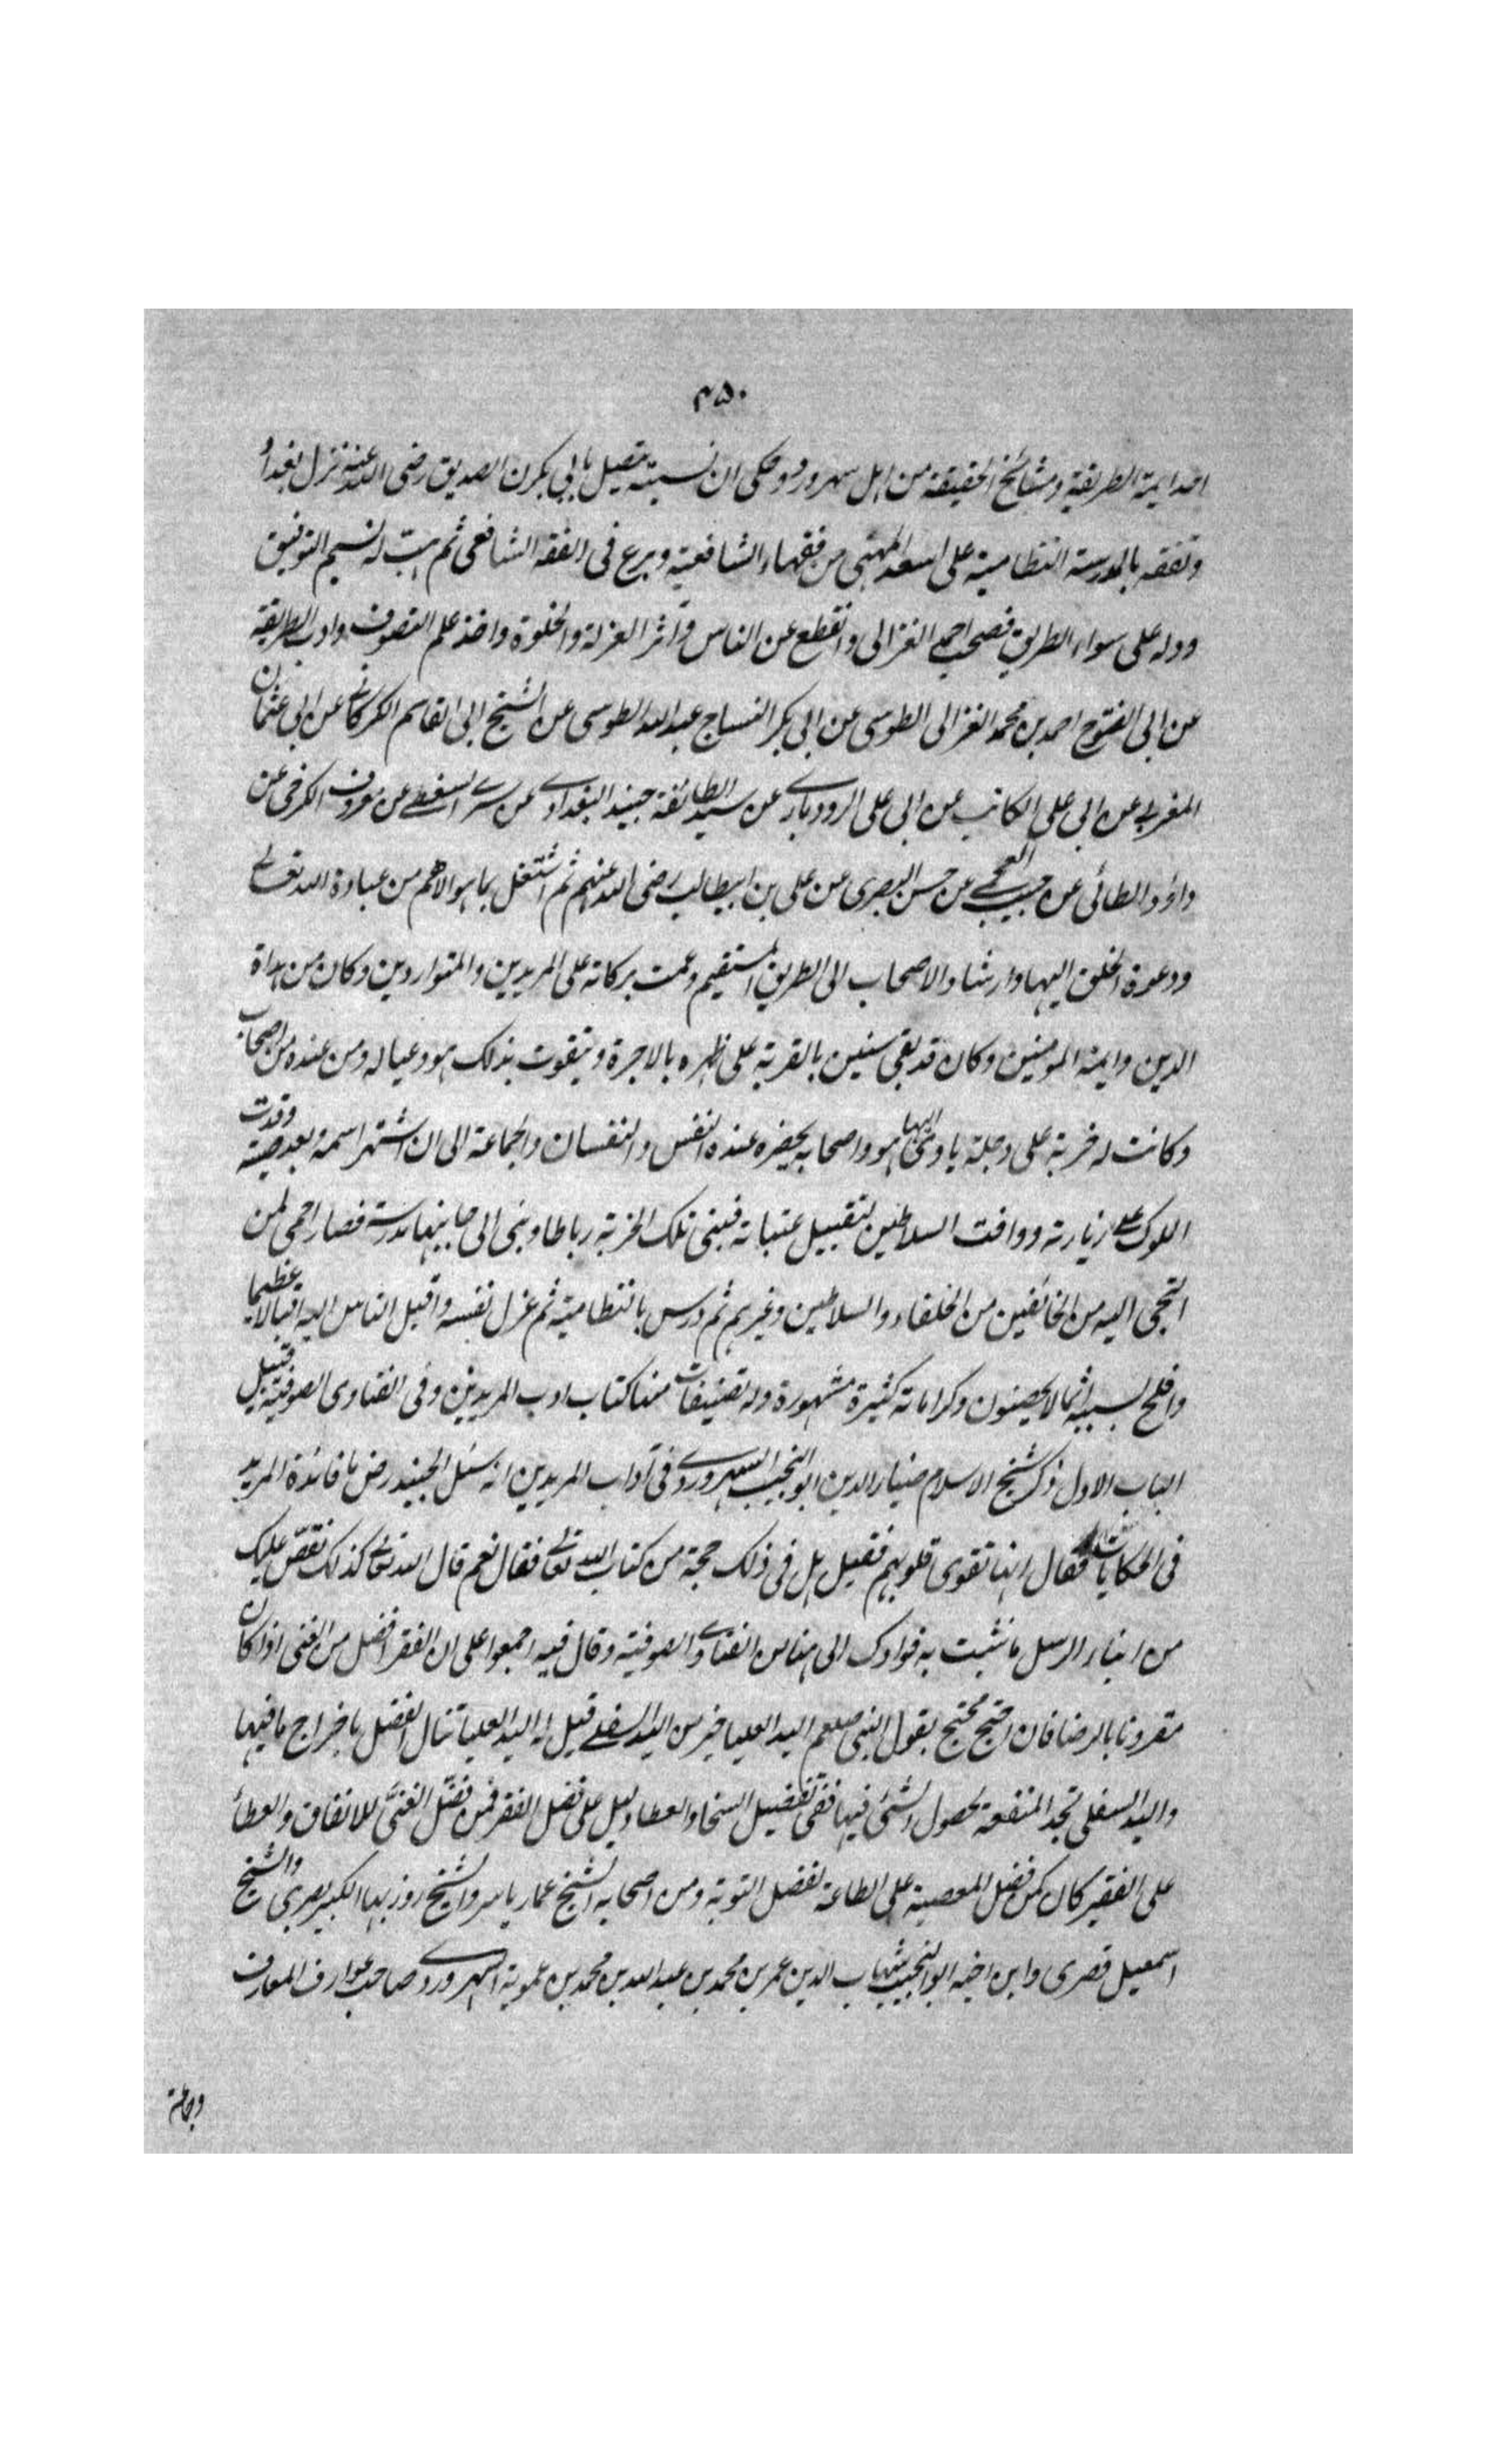 ۴۵۰
احد ایمة الطریقة ومشائخ الحقیقة من اہل سہرورد وحکی ان نسبته متصل بابی بکرن الصدیق رضی الله عنه نزل بغداد
وتفقه بالمدرسة النظامیة علی اسعد المهنی من فقهاء الشافعیة وبرع فی الفقه الشافعی ثم هبّ له نسیم التوفیق
ودله علی سواء الطریق فصحب احمد الغزالی وانقطع عن الناس وآثر العزلة والخلوة واخذ علم التصوف وادب الطریقة
عن ابی الفتوح احمد بن محمد الغزالی الطوسی عن ابی بکر النساج عبد الله الطوسی عن الشیخ ابی القاسم الکرکانے عن ابی عثمان
المغربے عن ابی علی الکاتب عن ابی علی الرودبارے عن سید الطائفة جنید البغدادے عن سرے السقطے عن معروف الکرخی عن
داؤد الطائی عن حبیب العجمے عن حسن البصری عن علی بن ابیطالب رضی الله عنهم ثم اشتغل بما هو الاهم من عبادة الله تعالے
ودعوة الخلق الیها وارشاد الاصحاب الی الطریق المستقیم وعمت برکاته علی المریدین والمتواردین وکان من هداة
الدین وایمة المومنین وکان قد بقی سنین بالقربة علی ظهره بالاجرة ویتقوت بذلک هو وعیاله ومن عنده من اصحاب
وکانت له خربة علی دجلة یاوی الیها هو واصحابه یحضره عنده النفس والنفسان والجماعة الی ان اشتهر اسمه وبعد صیته وقدت
الملوک علے زیارته ووافت السلاطین لتقبیل عتباته فبنی تلک الخربة رباطا وبنی الی جانبها مدرسة فصار احمی لمن
التجی الیه من الخائفین من الخلفاء والسلاطین وغیرهم ثم درس بالنظامیة ثم عزل نفسه واقبل الناس الیه اقبالا عظیما
وافلح بسببه اثما لا یحصون وکراماته کثیرة مشهورة وله تصنیفات منها کتاب ادب المریدین وفی الفتاوی الصوفیة قبیل
الباب الاول ذکر شیخ الاسلام ضیاء الدین ابو النجیب السهروردے فی آداب المریدین انه سئل الجنید رض ما فائدة المرید
فی الحکایات فقال انها تقوی قلوبهم فقیل هل فی ذلک حجة من کتاب الله تعالے فقال نعم قال الله تعالے کذلک نقصّ علیک
من انباء الرسل ما نثبت به فوادک الی هنا من الفتاوے الصوفیة وقال فیه اجمعوا علی ان الفقر افضل من الغنی اذا کان
مقرونا بالرضا فان احتج محتج بقول النبی صلعم الید العلیا خیر من الید السفلے قیل له الید العلیا تنال الفضل باخراج ما فیها
والید السفلی تجد المنفعة بحصول الشئ فیها ففی تفضیل السخا والعطا دلیل علی فضل الفقر فمن فضّل الغنیّ للانفاق والعطا
علی الفقیر کان کمن فضل المعصیة علی الطاعة لفضل التوبة ومن اصحابه الشیخ عمار یاسر والشیخ روزبها الکبیر مصری والشیخ
اسمعیل قصری وابن اخیه ابو النجیب شهاب الدین عمر بن محمد بن عبد الله بن محمد بن عمویة السهروردے صاحب عوارف المعارف
وجماعة